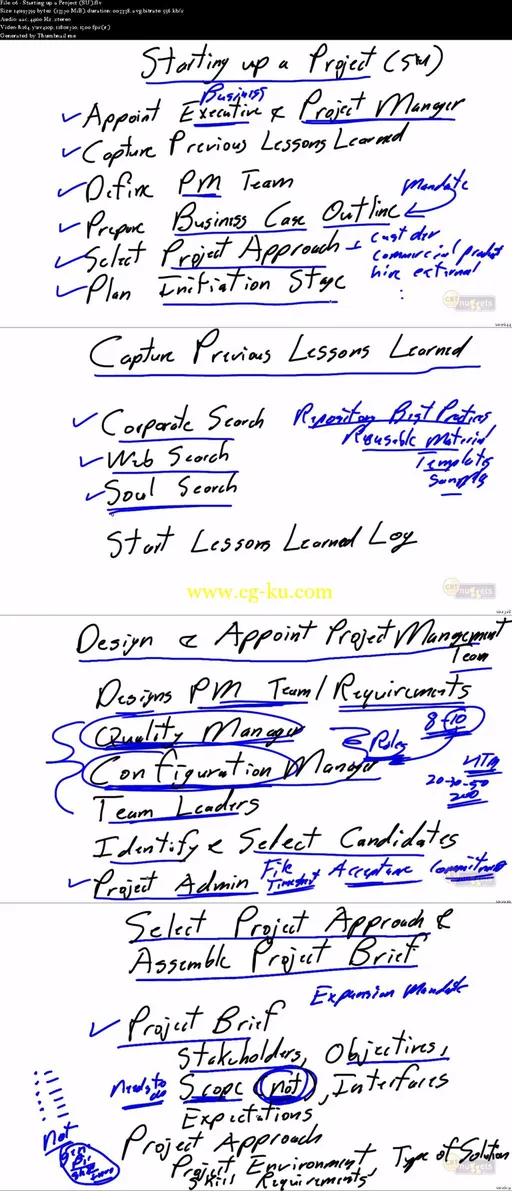 File: 06 - Starting up a Project (SU).flv
Audio: aac, 44100 Hz, stereo
Generated by Thumbnail me
Starting up a Project (SU)
Business
✓ Appoint Executive & Project Manager
✓ Capture Previous Lessons Learned
✓ Define PM Team
Mandate
✓ Prepare Business Case Outline
✓ Select Project Approach
cust dev
commercial product
hire external
✓ Plan Initiation Stage
CBT nuggets
Capture Previous Lessons Learned
✓ Corporate Search
Repository Best Practices
Reusable Material
✓ Web Search
Templates
Samples
✓ Soul Search
Start Lessons Learned Log
CBT nuggets
www.cg-ku.com
Design & Appoint Project Management
Team
Designs PM Team/Requirements
Quality Manager
Roles
8 - 10
Configuration Manager
20-30-50
200
Team Leaders
Identify & Select Candidates
✓ Project Admin
File
Timesheet
Acceptance
Commitment
Select Project Approach &
Assemble Project Brief
Expansion Mandate
✓ Project Brief
Stakeholders, Objectives,
Needs to do
Scope (not), Interfaces
Expectations
not
Project Approach
Project Environment, Type of Solution
Skill Requirements